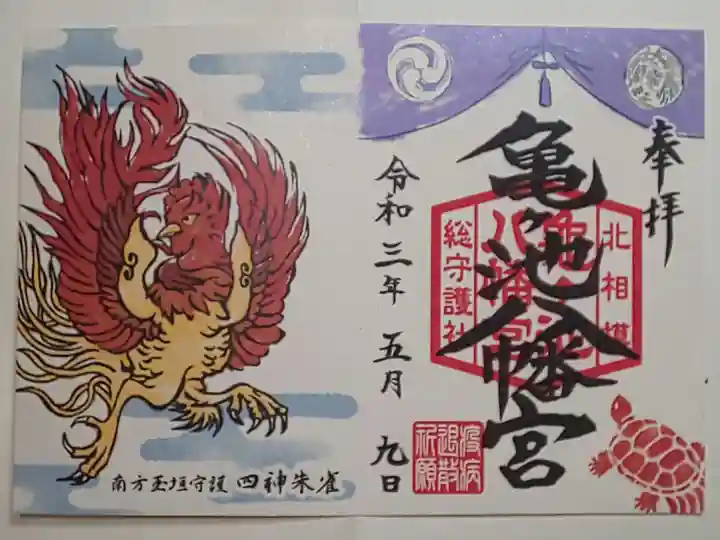 奉拝
北相模
亀ヶ池八幡宮
亀ヶ池
八幡宮
総守護社
疫病
退散
祈願
令和三年 五月 九日
南方玉垣守護 四神朱雀